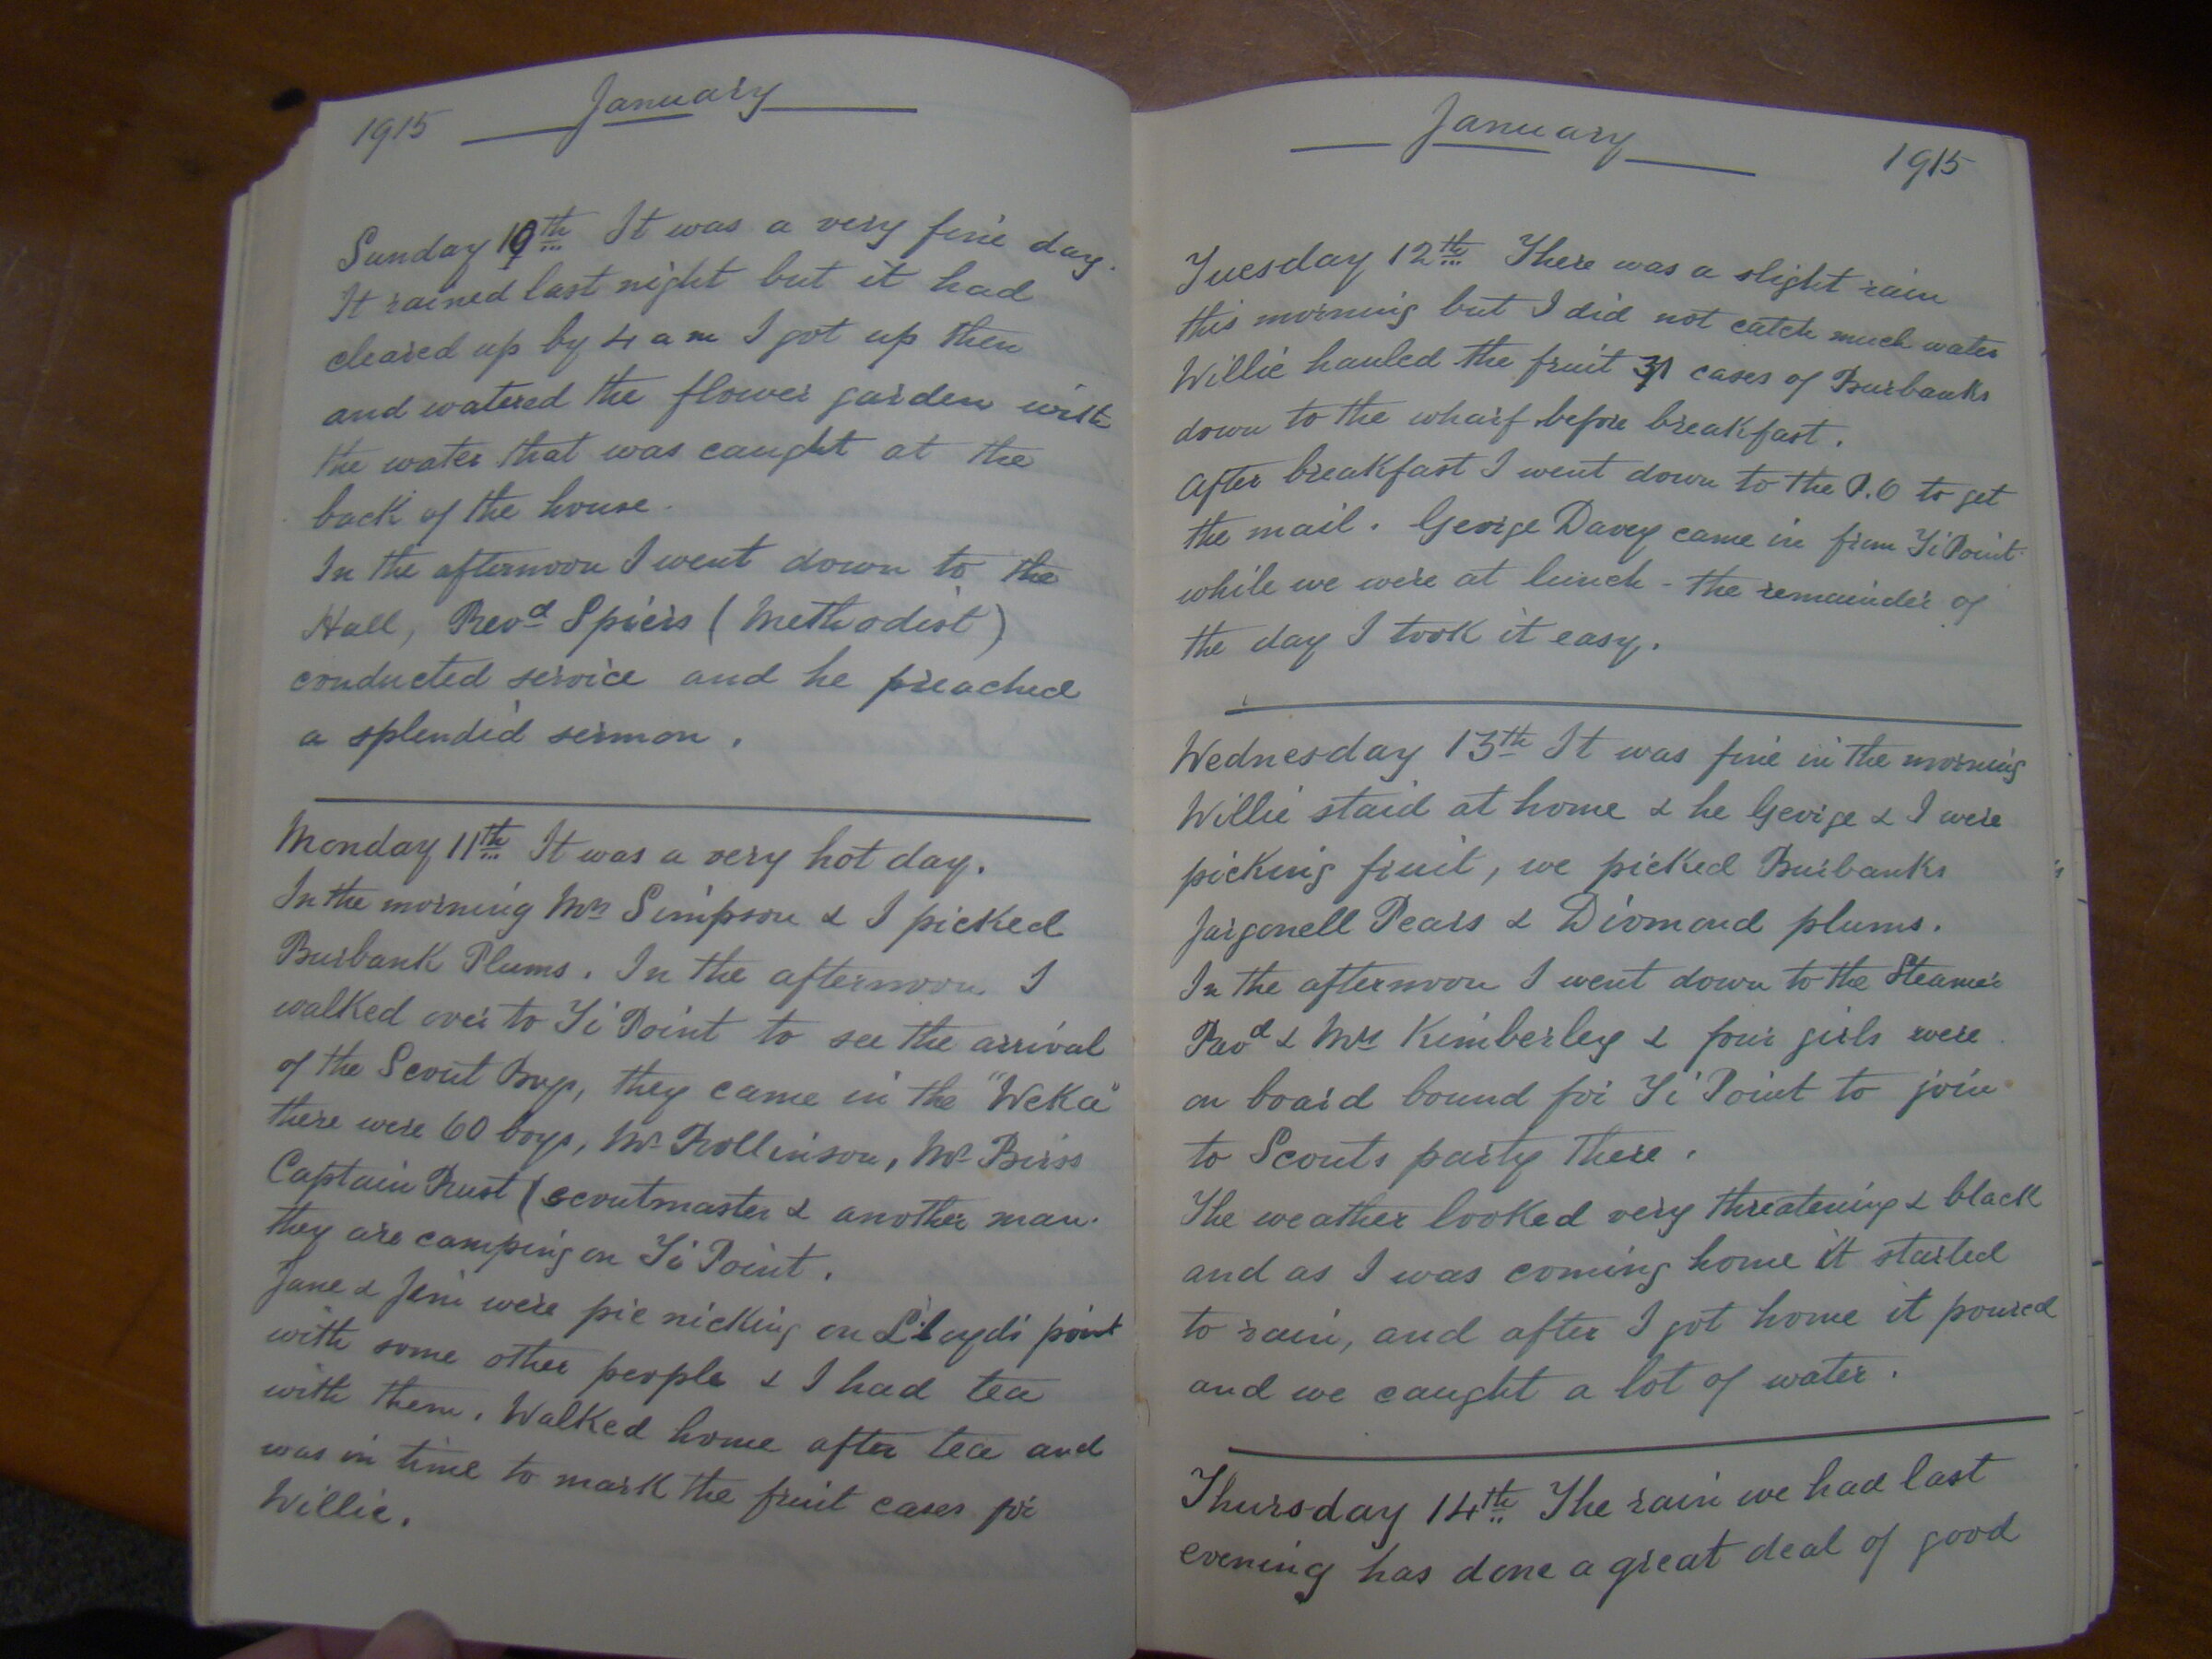 1915 January
Sunday 10th It was a very fine day.
It rained last night but it had
cleared up by 4 am I got up then
and watered the flower garden with
the water that was caught at the
back of the house.
In the afternoon I went down to the
Hall, Revd Spiers (Methodist)
conducted service and he preached
a splendid sermon.
Monday 11th It was a very hot day.
In the morning Mrs Simpson & I picked
Burbank Plums. In the afternoon I
walked over to Ti Point to see the arrival
of the Scout Boys, they came in the "Weka"
there were 60 boys, Mr Rollinson, Mr Birss
Captain Rust (scoutmaster & another man.
they are camping on Ti Point.
Jane & Jim were pic nicking on Lloyds point
with some other people & I had tea
with them. Walked home after tea and
was in time to mark the fruit cases for
Willie.
January 1915
Tuesday 12th There was a slight rain
this morning but I did not catch much water
Willie hauled the fruit 31 cases of Burbanks
down to the wharf before breakfast.
After breakfast I went down to the P.O to get
the mail. George Davey came in from Ti Point
while we were at lunch - the remainder of
the day I took it easy.
Wednesday 13th It was fine in the morning
Willie staid at home & he George & I were
picking fruit, we picked Burbanks
Jargonell Pears & Diomond plums.
In the afternoon I went down to the Steamer
Revd & Mrs Kimberley & four girls were
on board bound for Ti Point to join
to Scouts party there.
The weather looked very threatening & black
and as I was coming home it started
to rain, and after I got home it poured
and we caught a lot of water.
Thursday 14th The rain we had last
evening has done a great deal of good